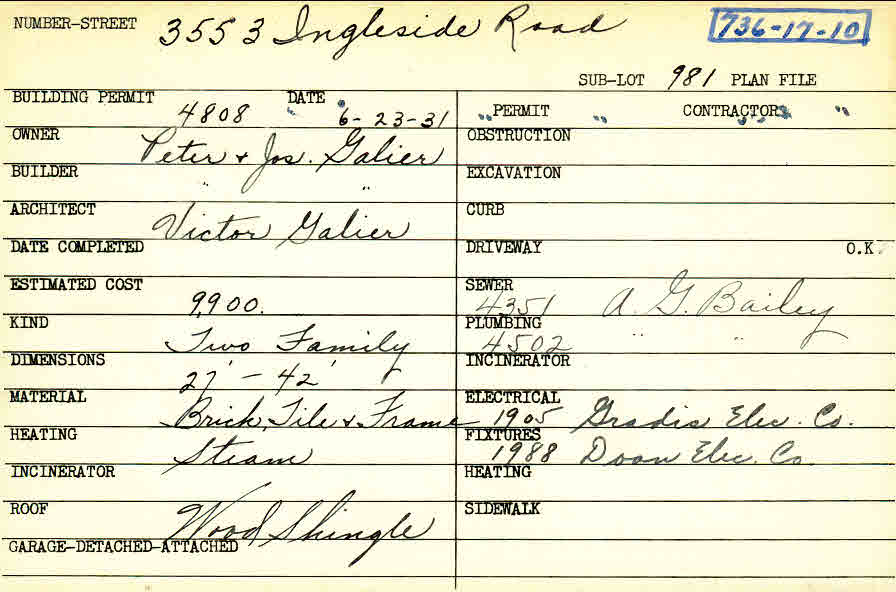 NUMBER-STREET 3553 Ingleside Road 736-17-10
SUB-LOT 981 PLAN FILE
BUILDING PERMIT 4808 DATE 6-23-31 " PERMIT " CONTRACTORS "
OWNER Peter & Jos. Galier OBSTRUCTION
BUILDER " " EXCAVATION
ARCHITECT Victor Galier CURB
DATE COMPLETED DRIVEWAY O.K
ESTIMATED COST 9,900. SEWER 4351 A. G. Bailey
KIND Two Family PLUMBING 4502 " "
DIMENSIONS 27' - 42' INCINERATOR
MATERIAL Brick, Tile & Frame ELECTRICAL 1905 Gradis Elec. Co.
HEATING Steam FIXTURES 1988 Doan Elec. Co.
INCINERATOR HEATING
ROOF Wood Shingle SIDEWALK
GARAGE-DETACHED-ATTACHED